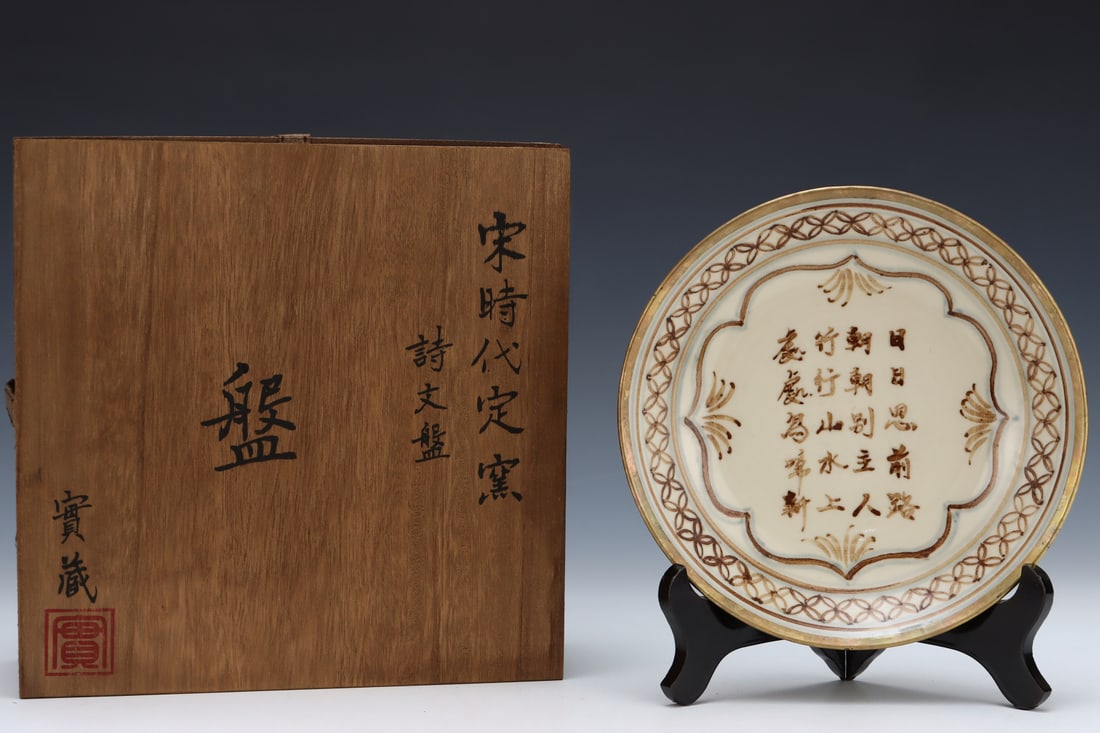 宋時代定窯
詩文盤
盤
實藏
實
日日思前路
朝朝別主人
行行山水上
處處鳥啼新